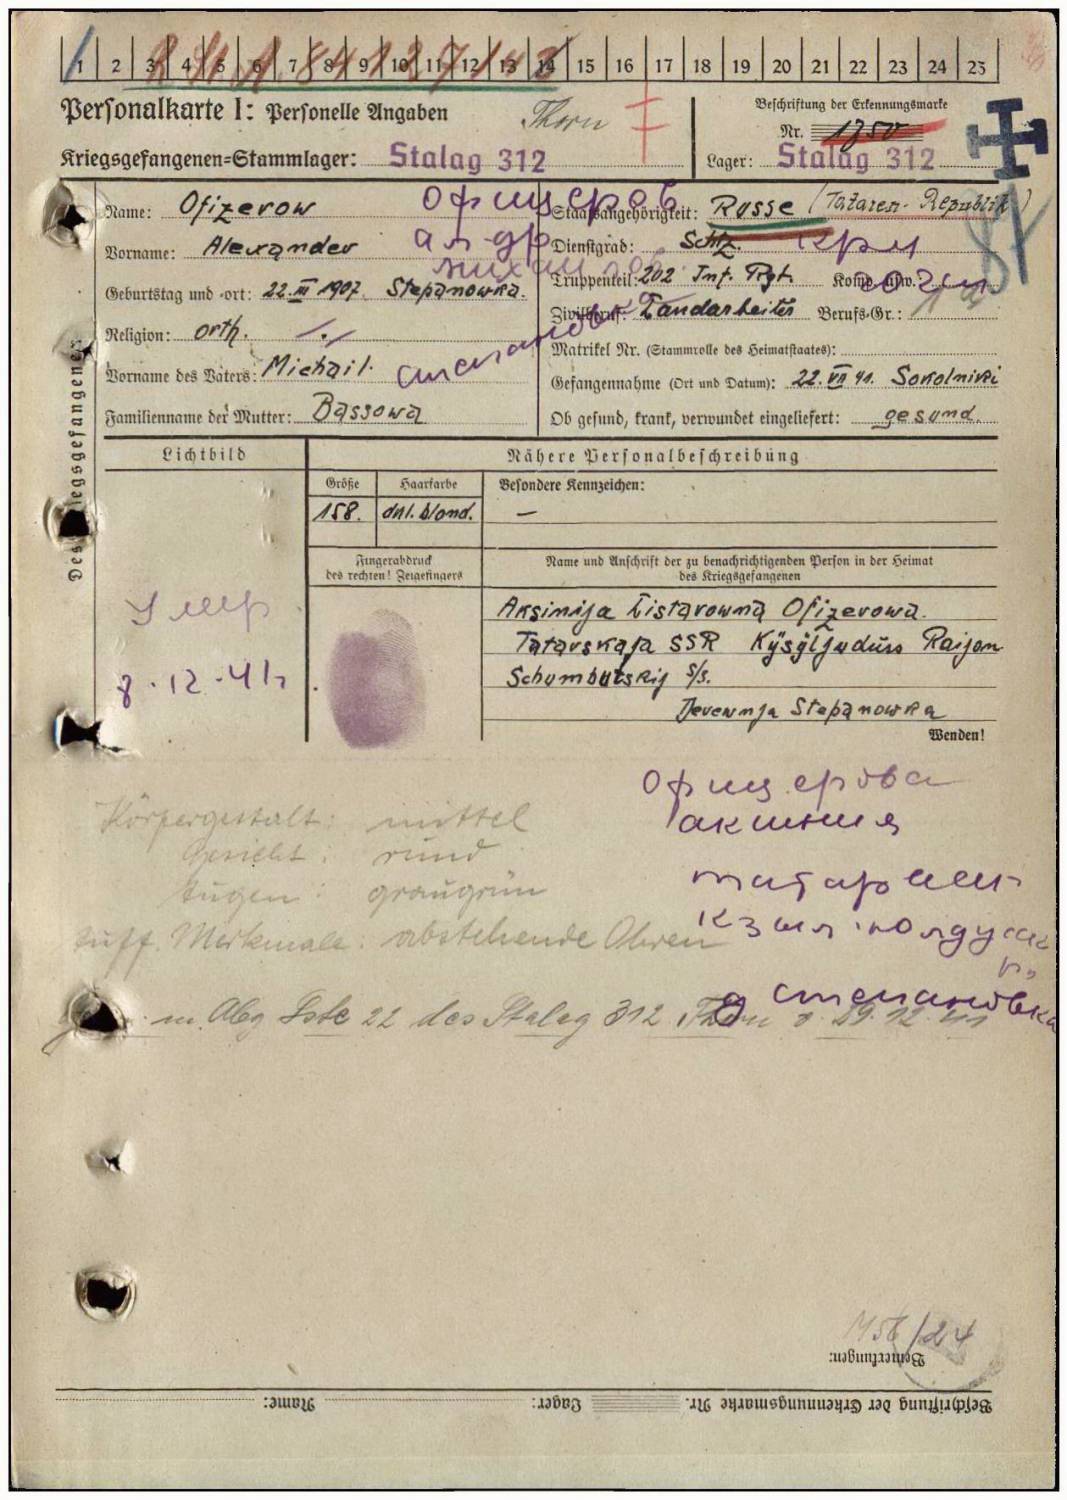 1 2 3 4 5 6 7 8 9 10 11 12 13 14 15 16 17 18 19 20 21 22 23 24 25
Personalkarte I: Personelle Angaben
Thorn
Beschriftung der Erkennungsmarke
Nr. 1750
Kriegsgefangenen=Stammlager: Stalag 312
Lager: Stalag 312
Des Kriegsgefangenen
Name: Ofizerow
Офицеров
Staatsangehörigkeit: Russe (Tataren-Republik)
Vorname: Alexander
ал-др
Dienstgrad: Schtz.
кр
Михайлов
Geburtstag und -ort: 22. III 1907. Stepanowka.
Truppenteil: 202 Inf. Rgt. Komp. usw.:
Zivilberuf: Landarbeiter Berufs-Gr.:
Religion: orth.
Степановка
Matrikel Nr. (Stammrolle des Heimatstaates):
Vorname des Vaters: Michail.
Gefangennahme (Ort und Datum): 22. VII 41. Sokolniki
Familienname der Mutter: Bassowa
Ob gesund, krank, verwundet eingeliefert: gesund.
Lichtbild
Nähere Personalbeschreibung
Größe
Haarfarbe
Besondere Kennzeichen:
158.
dkl. blond.
—
Fingerabdruck
des rechten! Zeigefingers
Name und Anschrift der zu benachrichtigenden Person in der Heimat
des Kriegsgefangenen
Умер
8.12.41г
Aksinija Listarowna Ofizerowa.
Tatarskaja SSR Kÿsÿljuduss Raijon
Schumbutskij s/s.
Derewnja Stepanowka
Wenden!
Офицерова
Аксиния
Körpergestalt: mittel
Gesicht: rund
Augen: graugrün
Auff. Merkmale: abstehende Ohren
Кзыл-юлдузск
р.
д Степановка
m. Abg Liste 22 des Stalag 312 Thorn v. 29.12.41
/24
Bemerkungen:
Beschriftung der Erkennungsmarke Nr. Lager: Name: